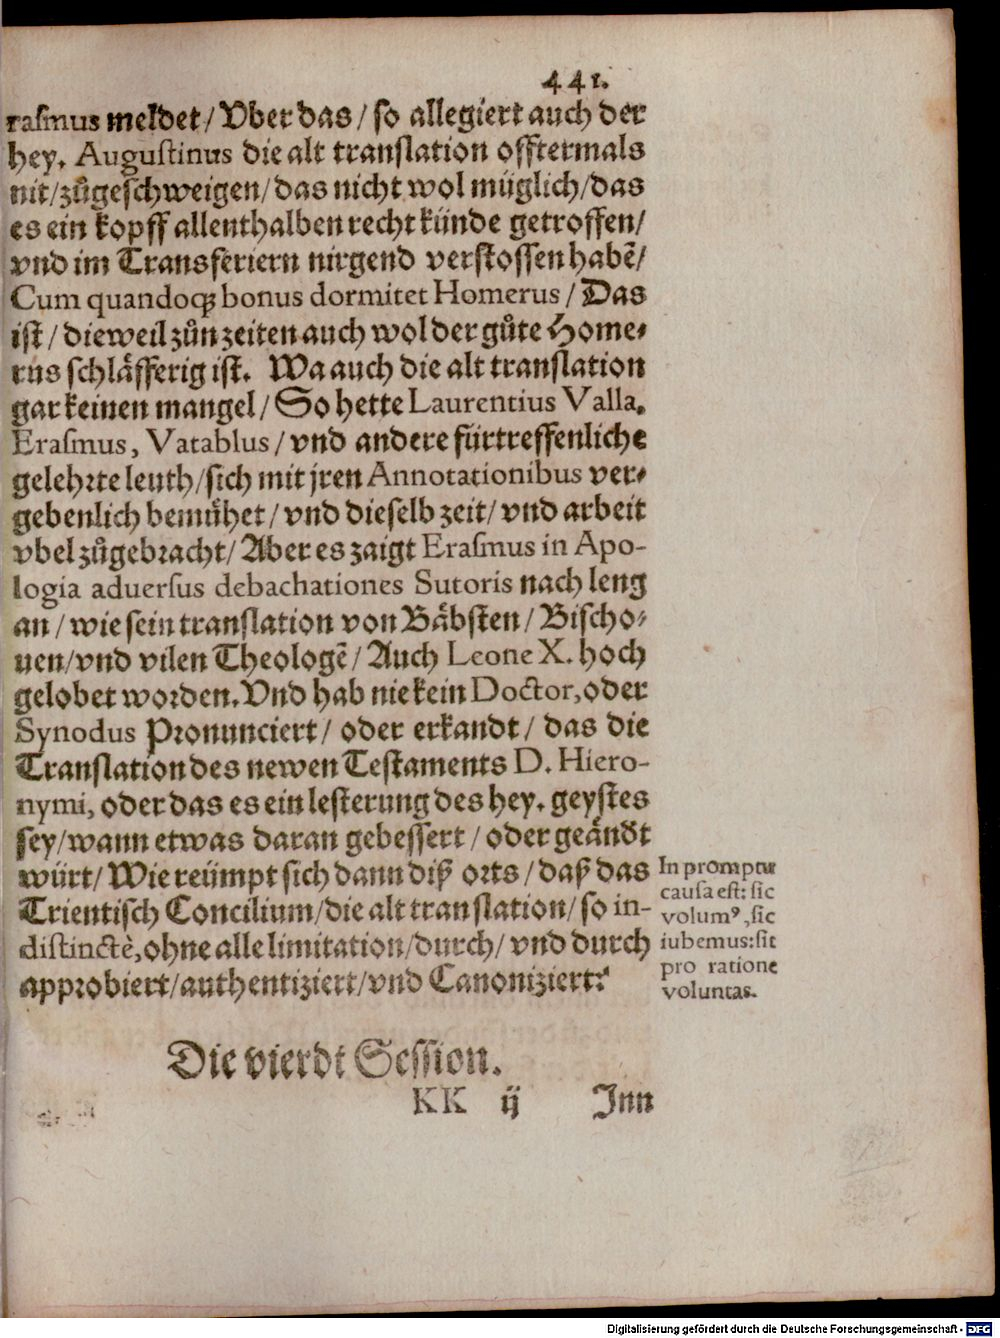 441.
rasmus meldet / Vber das / so allegiert auch der
hey. Augustinus die alt translation offtermals
nit / zůgeschweigen / das nicht wol müglich / das
es ein kopff allenthalben recht künde getroffen /
vnd im Transferiern nirgend verstossen habẽ /
Cum quandoq; bonus dormitet Homerus / Das
ist / dieweil zůn zeiten auch wol der gůte Home-
rus schläfferig ist. Wa auch die alt translation
gar keinen mangel / So hette Laurentius Valla.
Erasmus, Vatablus / vnd andere fürtreffenliche
gelehrte leuth / sich mit jren Annotationibus ver-
gebenlich bemühet / vnd dieselb zeit / vnd arbeit
vbel zůgebracht / Aber es zaigt Erasmus in Apo-
logia aduersus debachationes Sutoris nach leng
an / wie sein translation von Bäbsten / Bischo-
uen / vnd vilen Theologẽ / Auch Leone X. hoch
gelobet worden. Vnd hab nie kein Doctor, oder
Synodus Pronunciert / oder erkandt / das die
Translation des newen Testaments D. Hiero-
nymi, oder das es ein lesterung des hey. geystes
sey / wann etwas daran gebessert / oder geändt
würt / Wie reümpt sich dann diß orts / daß das
Trientisch Concilium / die alt translation / so in-
distinctè, ohne alle limitation / durch / vnd durch
approbiert / authentiziert / vnd Canoniziert?
In promptu
causa est: sic
volumꝰ, sic
iubemus: sit
pro ratione
voluntas.
Die vierdt Session.
KK ij Jnn
Digitalisierung gefördert durch die Deutsche Forschungsgemeinschaft - DFG